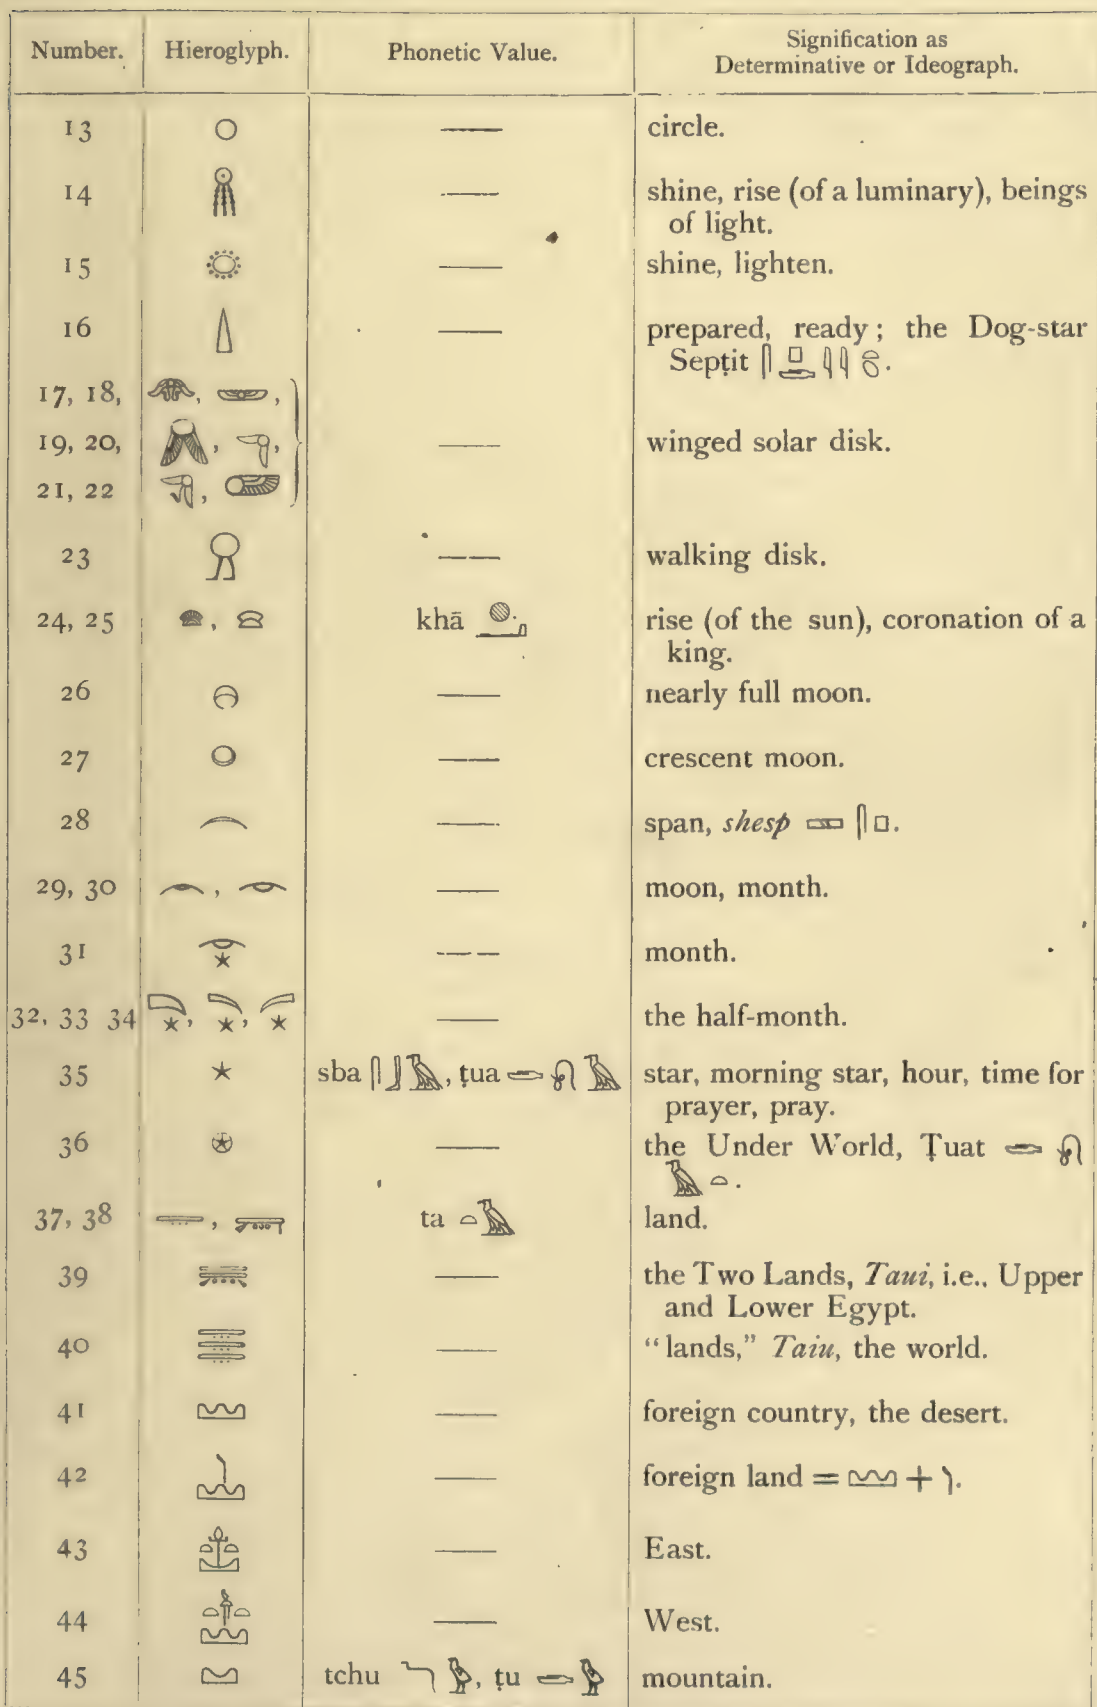 Number. Hieroglyph. Phonetic Value. Signification as Determinative or Ideograph.
13 ○ —— circle.
14 —— shine, rise (of a luminary), beings
of light.
15 —— shine, lighten.
16 —— prepared, ready; the Dog-star
Sepṭit 𓋴𓊪𓂧𓇌.
17, 18,
19, 20, —— winged solar disk.
21, 22
23 —— walking disk.
24, 25 khā 𓐍𓂝 rise (of the sun), coronation of a
king.
26 —— nearly full moon.
27 —— crescent moon.
28 —— span, shesp 𓈙𓋴𓊪.
29, 30 —— moon, month.
31 —— month.
32, 33 34 —— the half-month.
35 𓇼 sba 𓋴𓃀𓄿, ṭua 𓂧𓍯𓄿 star, morning star, hour, time for
prayer, pray.
36 𓇽 —— the Under World, Ṭuat 𓂧𓍯
𓄿𓏏.
37, 38 𓇾, 𓇿 ta 𓏏𓄿 land.
39 —— the Two Lands, Taui, i.e., Upper
and Lower Egypt.
40 —— “lands,” Taiu, the world.
41 𓈉 —— foreign country, the desert.
42 —— foreign land = 𓈉 + 𓌙.
43 —— East.
44 —— West.
45 𓈋 tchu 𓆓𓅱, ṭu 𓂧𓅱 mountain.